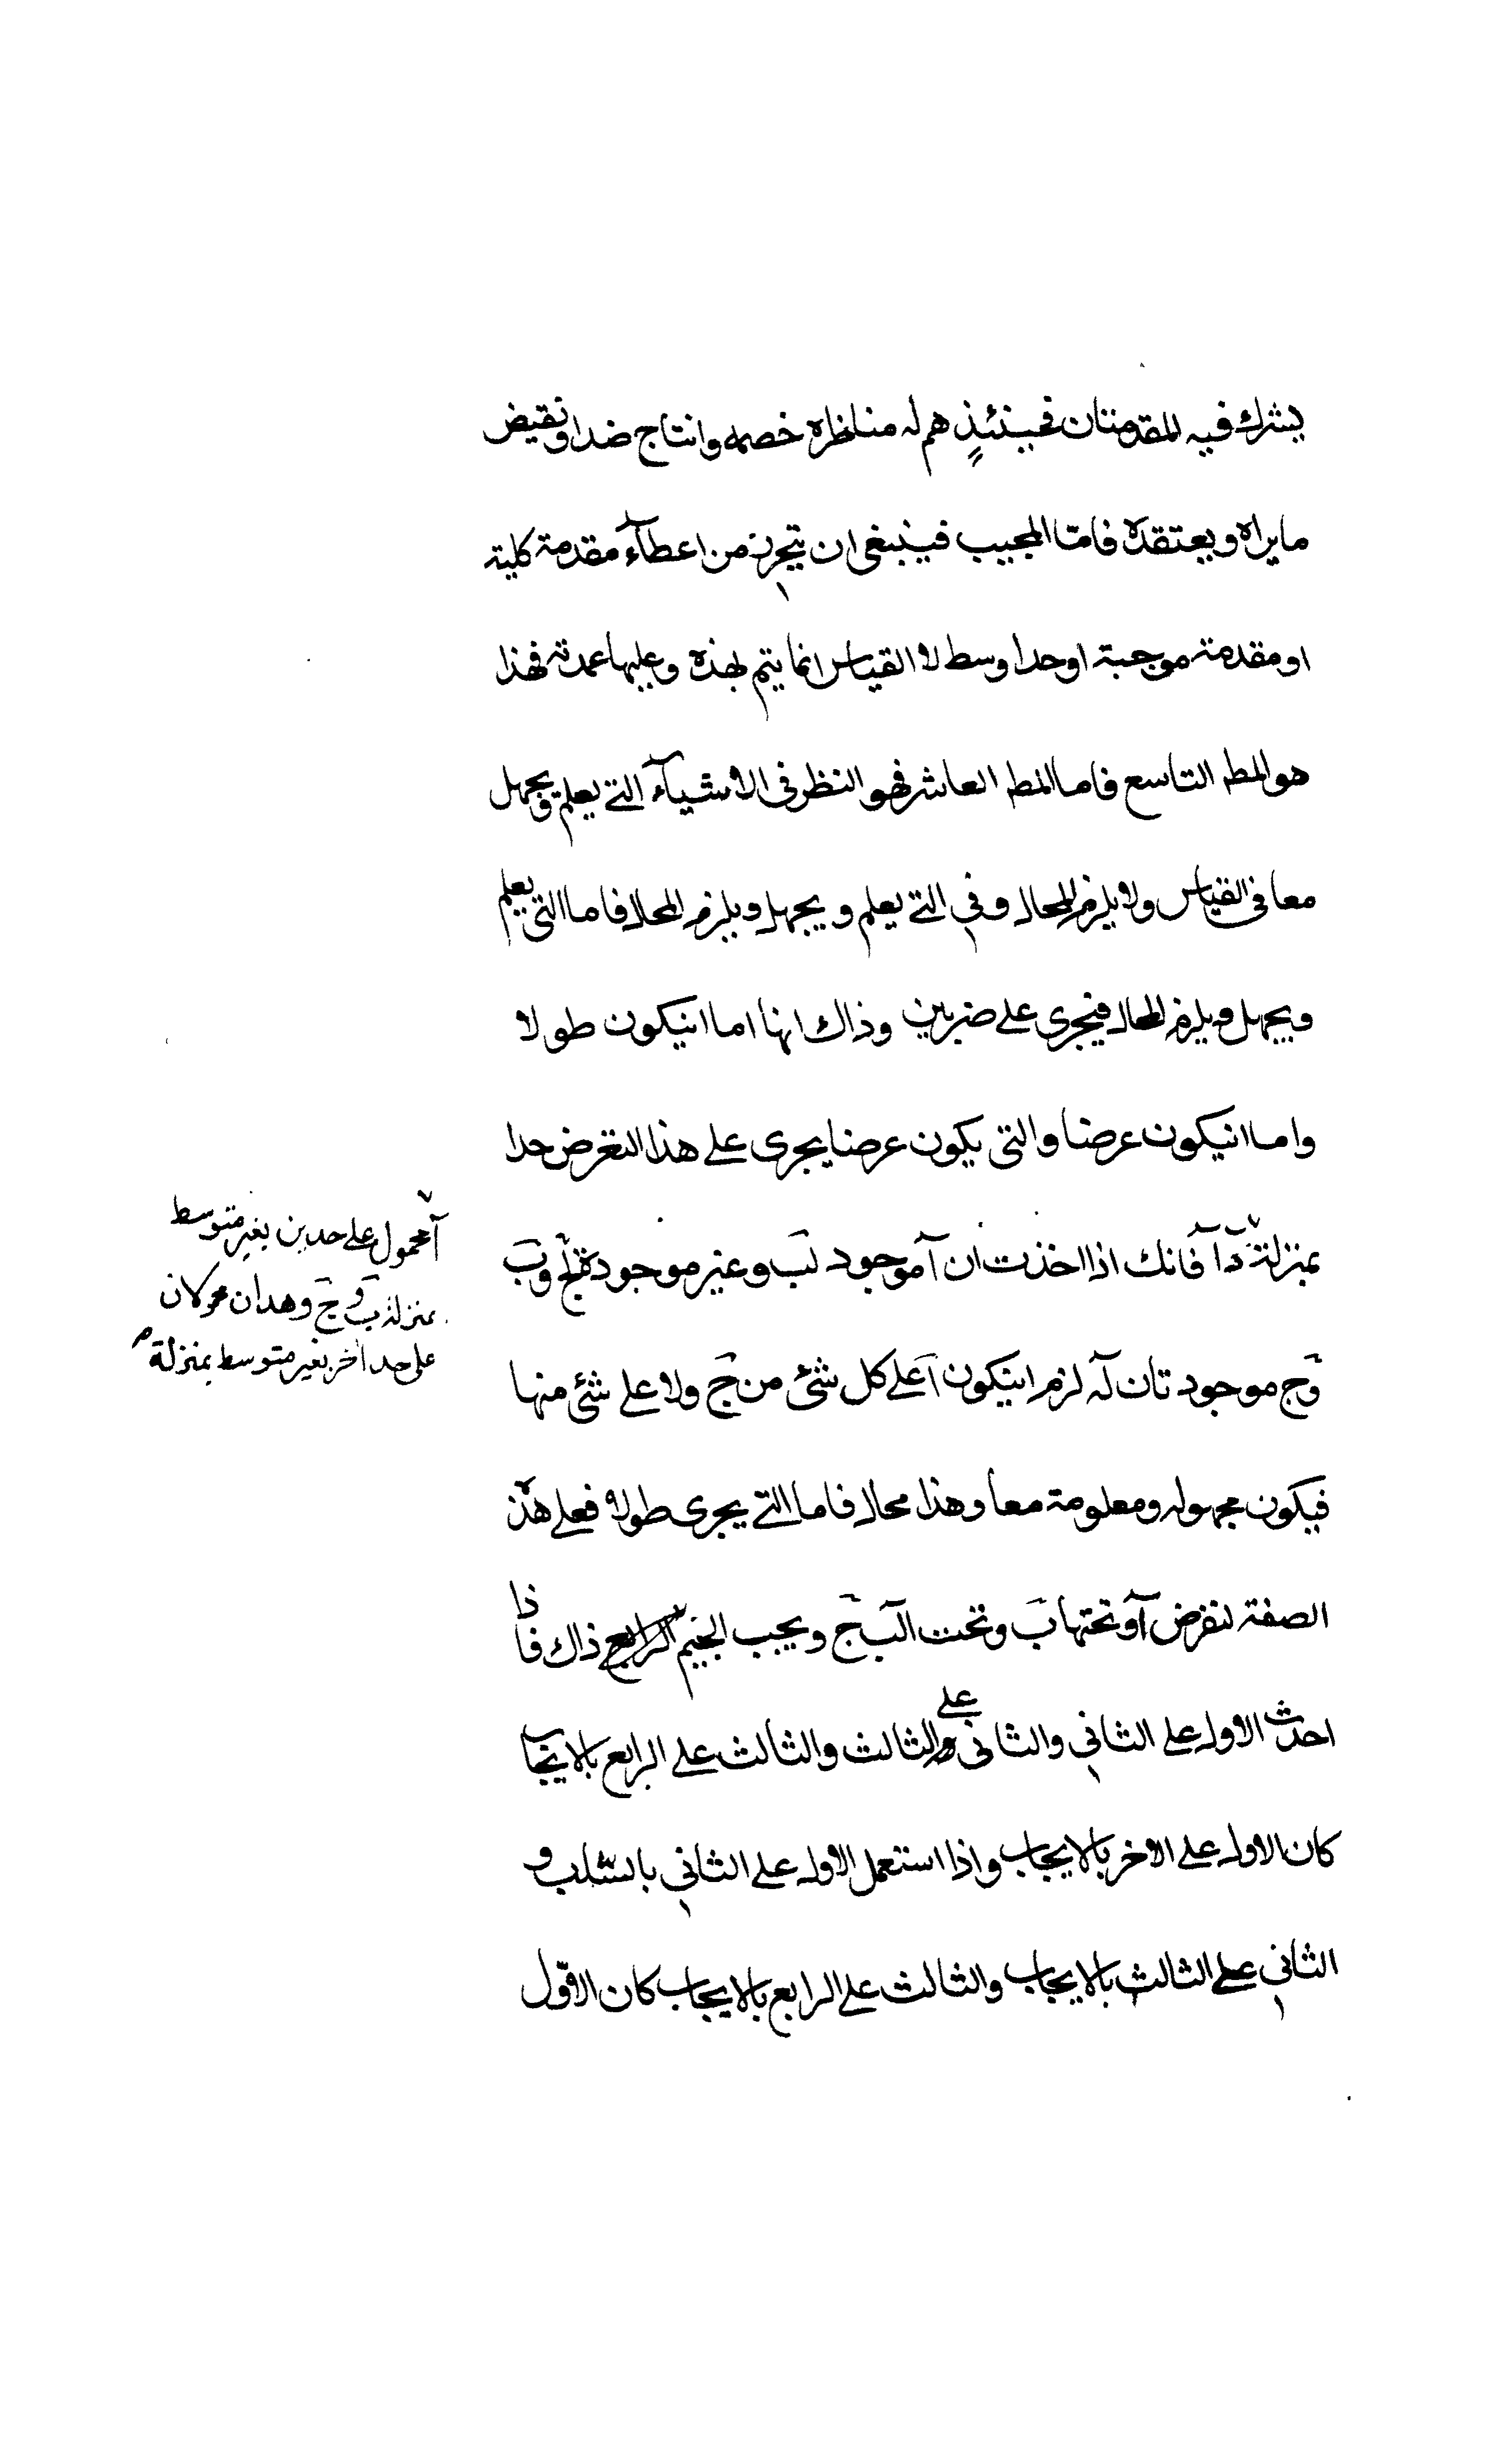 يشترك فيه المقدمتان فحينئذٍ هم له مناظره خصمه وانتاج ضد او نقيض
ما يراه ويعتقده فامّا المجيب فينبغى ان يتحرز من اعطآء مقدمة كلية
او مقدمة موجبة او حدا وسط لا القياس انما يتم بهذه وعليها عمدته فهذا
هو المط التاسع فاما المط العاشر فهو النظر فى الاشيآء التى يعلم ويجهل
معا فى القياس ولا يلزم المحال وفى التى يعلم ويجهل ويلزم المحال فاما التى يعلم
ويجهل ويلزم المحال فيجرى على ضربين وذاك انها اما انيكون طولا
واما انيكون عرضا والتى يكون عرضا يجرى على هذا لنفرض حدا
بمنزلة دآ فانك اذا اخذت ان آ موجود لب وغير موجودة لج وب
وج موجود تان له لزم انيكون آ على كل شئ من ج ولا على شئ منها
فيكون مجهوله ومعلومة معا وهذا محال فاما التى يجرى طولا فعلى هذه
الصفة لنفرض آ وتحتها ب وتحت الب ج ويجب الجيم الرابع ذاك فاذا
احدث الاول على الثانى والثانى على الثالث والثالث على الرابع بالايجاب
كان الاول على الاخر بالايجاب واذا استعمل الاول على الثانى بالسّلب و
الثانى على الثالث بالايجاب والثالث على الرابع بالايجاب كان الاوّل
آ محمول على حدين بغير متوسط
بمنزلة ب وج وهذان محمولان
على حد اخر بغير متوسط بمنزلة